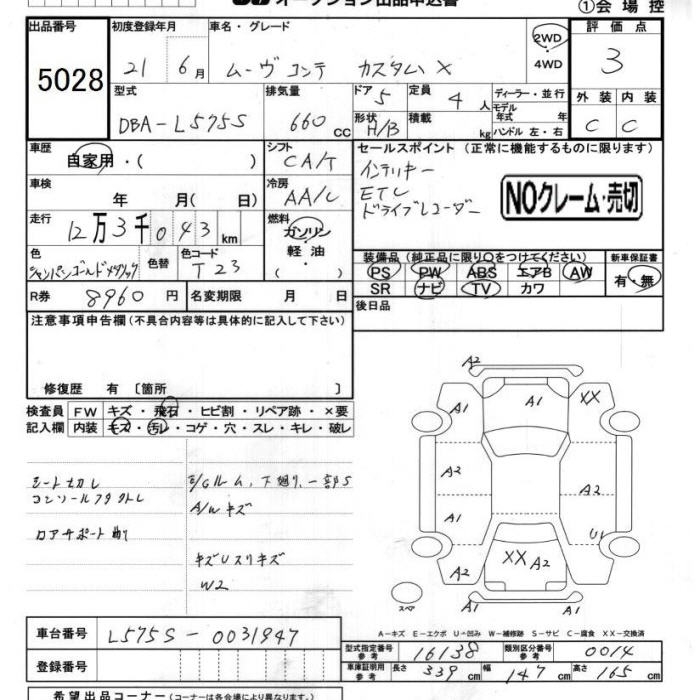 オークション出品申込書
①会場控
出品番号 5028
初度登録年月 21年 6月
車名・グレード ムーヴコンテ カスタム X
2WD・4WD
評価点 3
型式 DBA-L575S
排気量 660 cc
ドア 5 形状 H/B
定員 4人 積載 kg
ディーラー・並行
モデル年式 年
ハンドル 左・右
外装 C 内装 C
車歴 自家用・( )
シフト CA/T
セールスポイント (正常に機能するものに限ります)
インテリキー
ETC
ドライブレコーダー
NOクレーム・売切
車検 年 月( 日)
冷房 AA/C
走行 12万3千043km
燃料 ガソリン・軽油・( )
色 シャンパンゴールドメタリック
色替
色コード T23
装備品 (純正品に限り○をつけてください)
PS PW ABS エアB AW
SR ナビ TV カワ
新車保証書 有・無
R券 8960円
名変期限 月 日
後日品
注意事項申告欄 (不具合内容等は具体的に記入して下さい)
修復歴 有 〔箇所 〕
検査員記入欄
FW キズ・飛石・ヒビ割・リペア跡・×要
内装 キズ・汚レ・コゲ・穴・スレ・キレ・破レ
シート切レ
コンソールフタ
E/Gルーム、下廻り、一部S
A/Wキズ
キズUスリキズ
W2
A2
A1
A1
XX
A2
A1
A2
U1
A2
XX A2
A1
スペア
A-キズ E-エクボ U-凹み W-補修跡 S-サビ C-腐食 XX-交換済
車台番号 L575S-0031947
登録番号
型式指定番号 参考 16138
類別区分番号 参考 0014
車庫証明用 参考 長さ 339cm 幅 147cm 高さ 165cm
希望出品コーナー (コーナーは各会場により異なります)